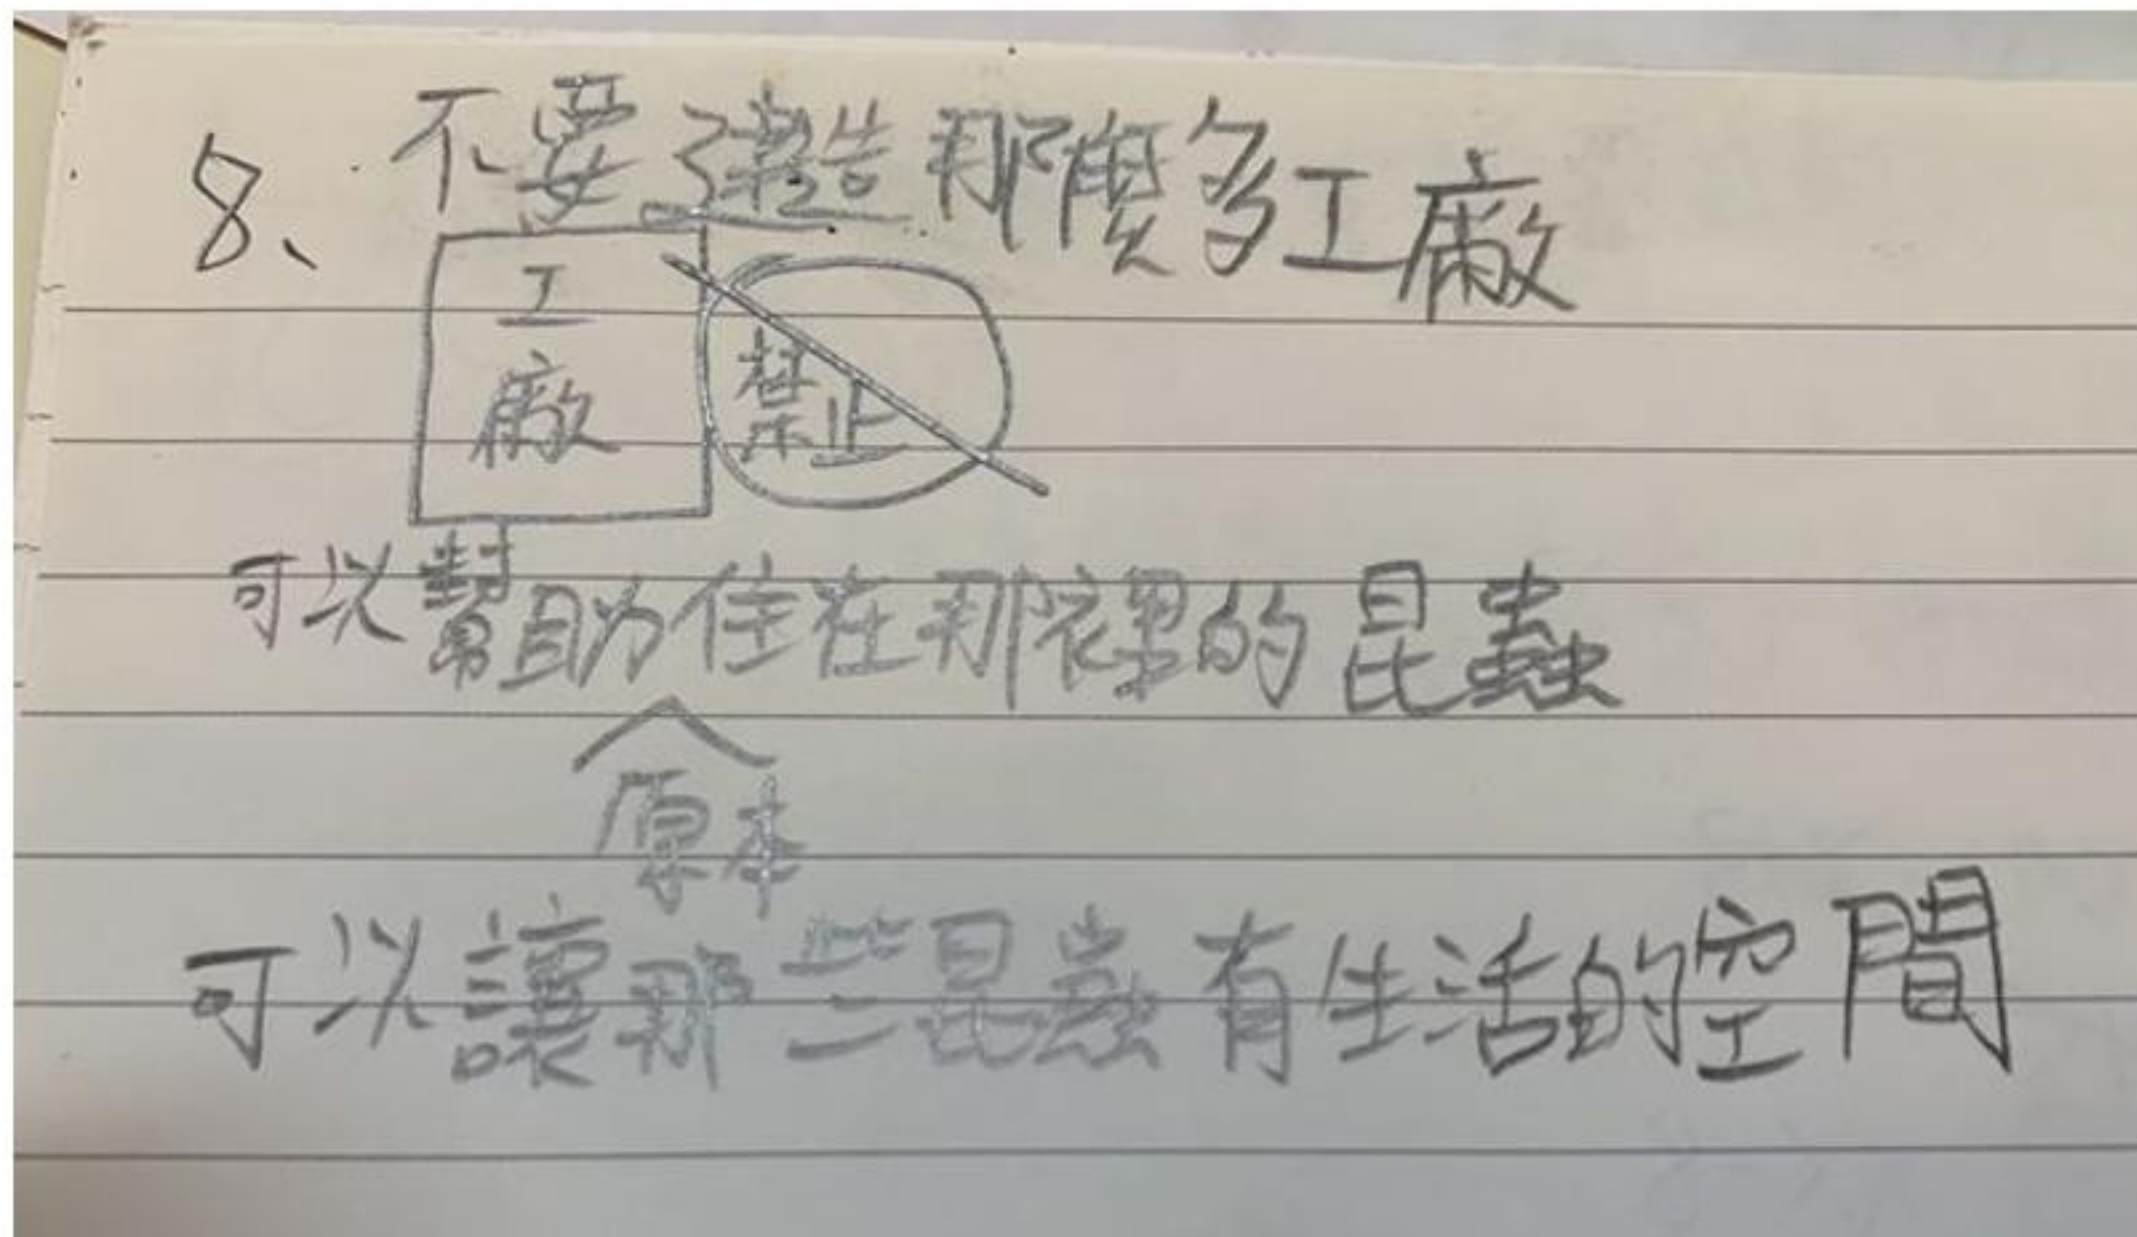 8、不要建造那麼多工廠
工
廠
禁止
可以幫助住在那裡的昆蟲
原本
可以讓那些昆蟲有生活的空間